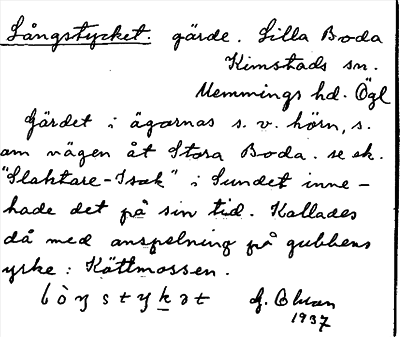 Långstycket. gärde. Lilla Boda
Kimstads sn.
Memmings hd. Ögl
Gärdet i ägornas s. v. hörn, s.
om vägen åt Stora Boda. se ek.
"Slaktare-Isak" i Sundet inne-
hade det på sin tid. Kallades
då med anspelning på gubbens
yrke: Köttmossen.
1937